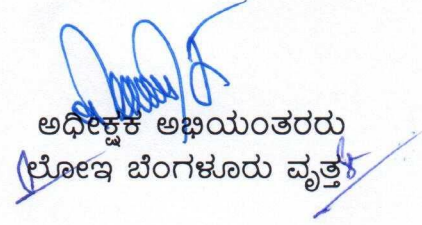 ಅಧೀಕ್ಷಕ ಅಭಿಯಂತರರು
ಲೋಇ ಬೆಂಗಳೂರು ವೃತ್ತ